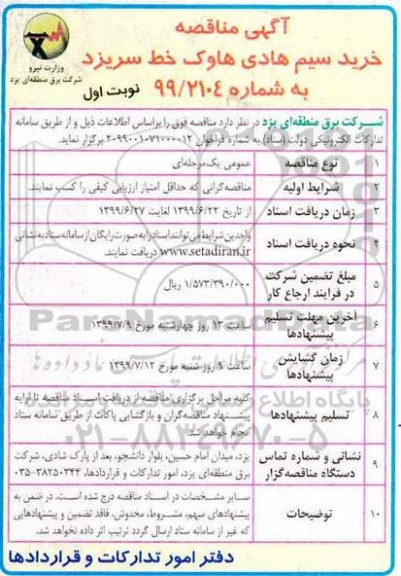 آگهی مناقصه
خرید سیم هادی هاوک خط سریزد
به شماره ۹۹/۲۱۰۴
نوبت اول
وزارت نیرو
شرکت برق منطقه‌ای یزد
شرکت برق منطقه‌ای یزد در نظر دارد مناقصه فوق را براساس اطلاعات ذیل و از طریق سامانه
تدارکات الکترونیکی دولت (ستاد) به شماره فراخوان ۲۰۹۹۰۰۱۰۷۱۰۰۰۰۱۲ برگزار نماید.
۱ نوع مناقصه عمومی یک‌مرحله‌ای
۲ شرایط اولیه مناقصه‌گرانی که حداقل امتیاز ارزیابی کیفی را کسب نمایند.
۳ زمان دریافت اسناد از تاریخ ۱۳۹۹/۶/۲۲ لغایت ۱۳۹۹/۶/۲۷
۴ نحوه دریافت اسناد واجدین شرایط می‌توانند اسناد را به صورت رایگان از سامانه ستاد به نشانی
www.setadiran.ir دریافت نمایند.
۵ مبلغ تضمین شرکت
در فرایند ارجاع کار ۱/۵۷۳/۳۹۰/۰۰۰ ریال
۶ آخرین مهلت تسلیم
پیشنهادها ساعت ۱۳ روز چهارشنبه مورخ ۱۳۹۹/۷/۹
۷ زمان گشایش
پیشنهادها ساعت ۹ روز شنبه مورخ ۱۳۹۹/۷/۱۲
۸ تسلیم پیشنهادها کلیه مراحل برگزاری مناقصه از دریافت اسناد مناقصه تا ارایه
پیشنهاد مناقصه‌گران و بازگشایی پاکات از طریق سامانه ستاد
انجام خواهد شد.
۹ نشانی و شماره تماس
دستگاه مناقصه‌گزار یزد، میدان امام حسین، بلوار دانشجو، بعد از پارک شادی، شرکت
برق منطقه‌ای یزد، امور تدارکات و قراردادها، ۳۸۲۵۰۳۴۴-۰۳۵
۱۰ توضیحات سایر مشخصات در اسناد مناقصه درج شده است. در ضمن به
پیشنهادهای مبهم، مشروط، مخدوش، فاقد تضمین و پیشنهادهایی
که غیر از سامانه ستاد ارسال گردد ترتیب اثر داده نخواهد شد.
دفتر امور تدارکات و قراردادها
ParsNamadData
۰۲۱-۸۸۳۴۹۶۷۰-۵